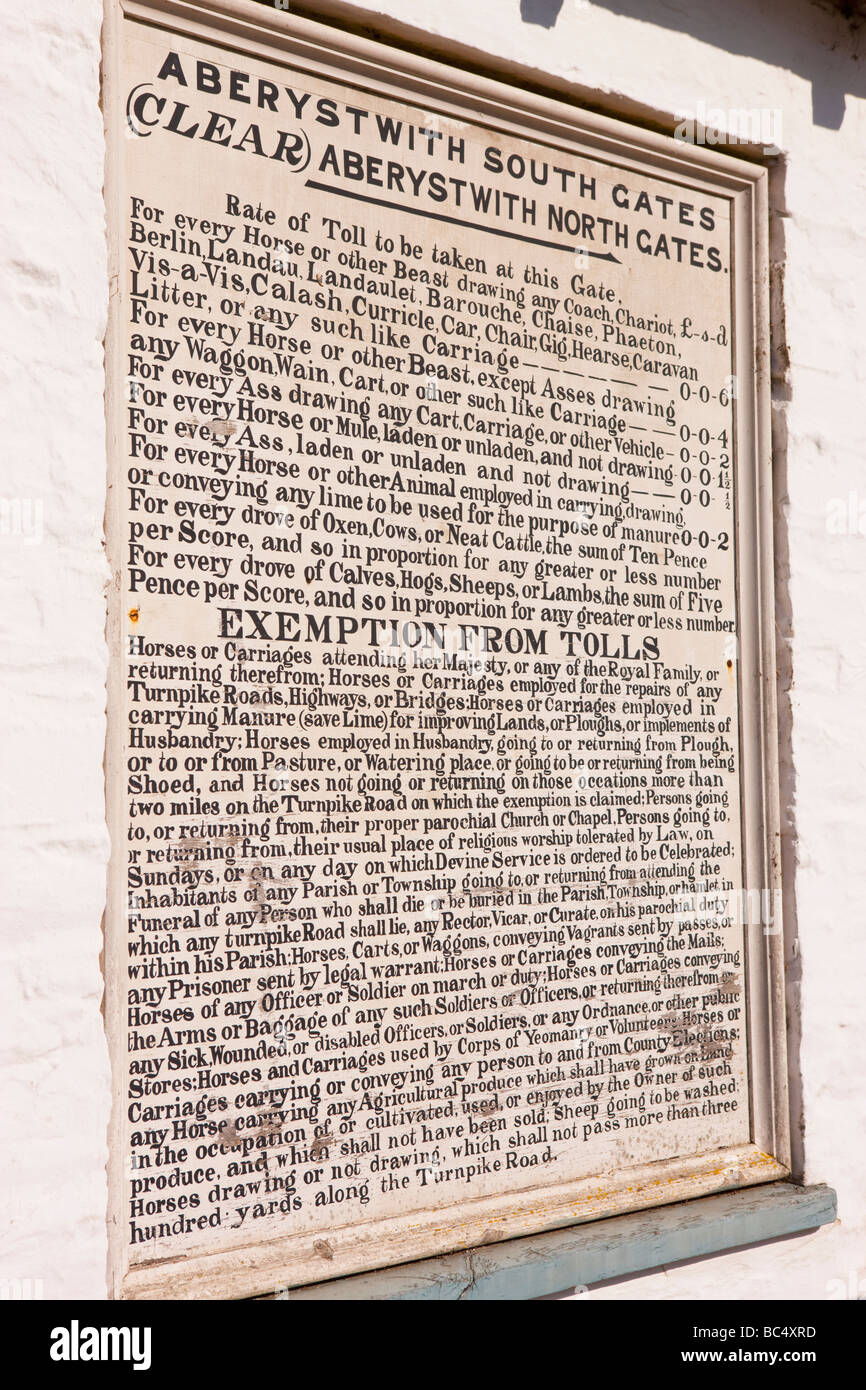 ABERYSTWITH SOUTH GATES
(CLEAR) ABERYSTWITH NORTH GATES.
Rate of Toll to be taken at this Gate,
For every Horse or other Beast drawing any Coach, Chariot, £-s-d
Berlin, Landau, Landaulet, Barouche, Chaise, Phaeton,
Vis-a-Vis, Calash, Curricle, Car, Chair, Gig, Hearse, Caravan
Litter, or any such like Carriage — — — — — — 0-0-6
For every Horse or other Beast, except Asses drawing
any Waggon, Wain, Cart, or other such like Carriage — — 0-0-4
For every Ass drawing any Cart, Carriage, or other Vehicle - 0-0-2
For every Horse or Mule, laden or unladen, and not drawing - 0-0-1½
For every Ass, laden or unladen and not drawing — — 0-0-½
For every Horse or other Animal employed in carrying, drawing,
or conveying any lime to be used for the purpose of manure 0-0-2
For every drove of Oxen, Cows, or Neat Cattle, the sum of Ten Pence
per Score, and so in proportion for any greater or less number
For every drove of Calves, Hogs, Sheeps, or Lambs, the sum of Five
Pence per Score, and so in proportion for any greater or less number.
EXEMPTION FROM TOLLS
Horses or Carriages attending her Majesty, or any of the Royal Family, or
returning therefrom; Horses or Carriages employed for the repairs of any
Turnpike Roads, Highways, or Bridges: Horses or Carriages employed in
carrying Manure (save Lime) for improving Lands, or Ploughs, or implements of
Husbandry; Horses employed in Husbandry, going to or returning from Plough,
or to or from Pasture, or Watering place, or going to be or returning from being
Shoed, and Horses not going or returning on those occations more than
two miles on the Turnpike Road on which the exemption is claimed; Persons going
to, or returning from, their proper parochial Church or Chapel, Persons going to,
or returning from, their usual place of religious worship tolerated by Law, on
Sundays, or on any day on which Devine Service is ordered to be Celebrated;
Inhabitants of any Parish or Township going to, or returning from attending the
Funeral of any Person who shall die or be buried in the Parish, Township, or hamlet in
which any turnpike Road shall lie, any Rector, Vicar, or Curate, on his parochial duty
within his Parish: Horses, Carts, or Waggons, conveying Vagrants sent by passes, or
any Prisoner sent by legal warrant: Horses or Carriages conveying the Mails;
Horses of any Officer or Soldier on march or duty; Horses or Carriages conveying
the Arms or Baggage of any such Soldiers or Officers, or returning therefrom or
any Sick, Wounded, or disabled Officers, or Soldiers, or any Ordnance, or other public
Stores: Horses and Carriages used by Corps of Yeomanry or Volunteers Horses or
Carriages carrying or conveying any person to and from County Elections;
any Horse carrying any Agricultural produce which shall have grown on Land
in the occupation of or cultivated, used, or enjoyed by the Owner of such
produce, and which shall not have been sold; Sheep going to be washed;
Horses drawing or not drawing, which shall not pass more than three
hundred yards along the Turnpike Road.
alamy
Image ID: BC4XRD
www.alamy.com